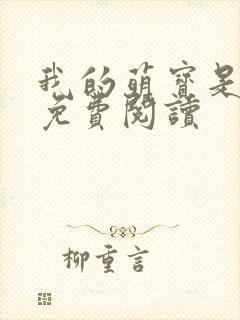 我的萌寶是
免費閱讀
柳重言